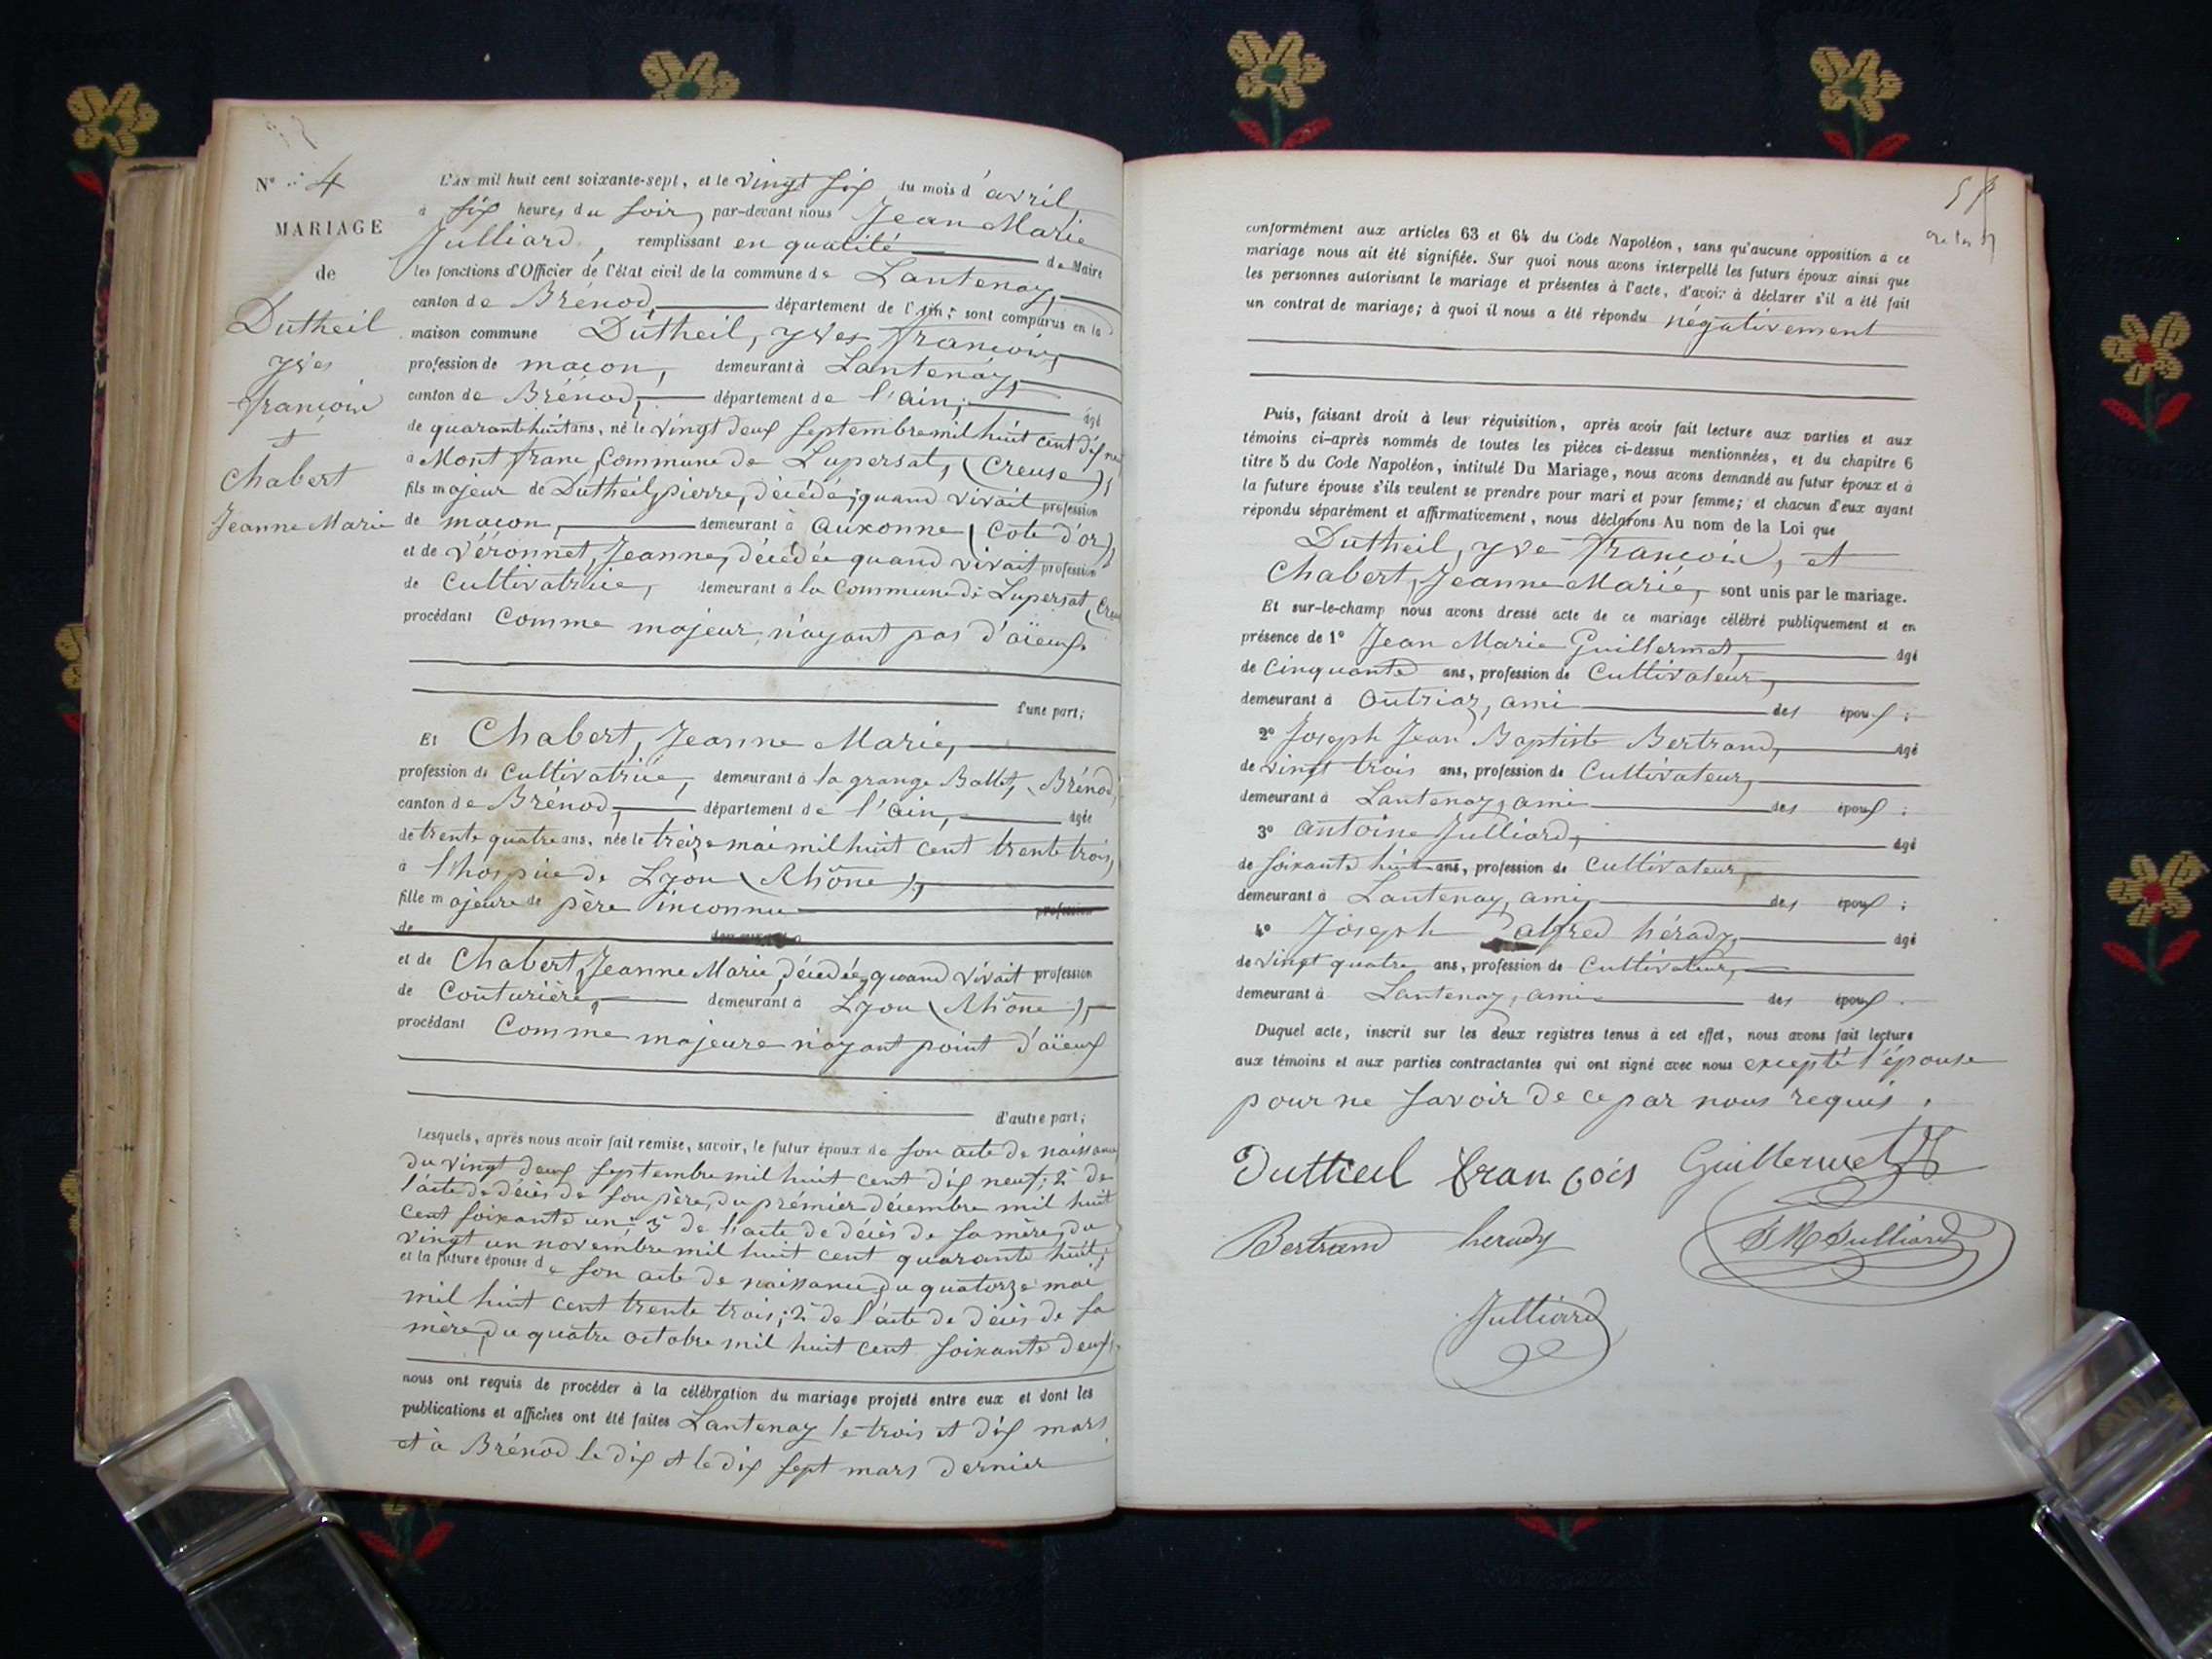 N° 4
MARIAGE
de
Dutheil
yves
françois
et
Chabert
Jeanne Marie
L'AN mil huit cent soixante-sept, et le vingt six du mois d'avril,
à six heures du soir, par-devant nous Jean Marie
Julliard, remplissant en qualité de Maire
les fonctions d'Officier de l'état civil de la commune de Lantenay,
canton de Brénod, département de l'Ain; sont comparus en la
maison commune Dutheil, yves françois,
profession de maçon, demeurant à Lantenay,
canton de Brénod, département de l'ain, âgé
de quarante huit ans, né le vingt deux septembre mil huit cent dix neuf
à Mont franc, Commune de Lupersat, (Creuse),
fils majeur de Dutheil, pierre, décédé, quand vivait profession
de maçon, demeurant à Auxonne (Côte d'or),
et de Véronnet, Jeanne, décédée quand vivait profession
de Cultivatrice, demeurant à la Commune de Lupersat (Creuse
procédant Comme majeur, n'ayant pas d'aïeux.
d'une part;
Et Chabert, Jeanne Marie,
profession de Cultivatrice, demeurant à la grange Ballet, Brénod,
canton de Brénod, département de l'ain, âgée
de trente quatre ans, née le treize mai mil huit cent trente trois,
à l'hospice de Lyon (Rhône),
fille majeure de père inconnu profession
de demeurant à
et de Chabert, Jeanne Marie, décédée, quand vivait profession
de Couturière, demeurant à Lyon (Rhône),
procédant Comme majeure n'ayant point d'aïeux
d'autre part;
Lesquels, après nous avoir fait remise, savoir, le futur époux de son acte de naissance
du vingt deux septembre mil huit cent dix neuf; 2° de
l'acte de décès de son père, du prémier décembre mil huit
cent soixante un; 3° de l'acte de décès de sa mère, du
vingt un novembre mil huit cent quarante huit;
et la future épouse de son acte de naissance, du quatorze mai
mil huit cent trente trois; 2° de l'acte de décès de sa
mère, du quatre octobre mil huit cent soixante deux,
nous ont requis de procéder à la célébration du mariage projeté entre eux et dont les
publications et affiches ont été faites Lantenay le trois et dix mars
et à Brénod le dix et le dix sept mars dernier
conformément aux articles 63 et 64 du Code Napoléon, sans qu'aucune opposition à ce
mariage nous ait été signifiée. Sur quoi nous avons interpellé les futurs époux ainsi que
les personnes autorisant le mariage et présentes à l'acte, d'avoir à déclarer s'il a été fait
un contrat de mariage; à quoi il nous a été répondu négativement
Puis, faisant droit à leur réquisition, après avoir fait lecture aux parties et aux
témoins ci-après nommés de toutes les pièces ci-dessus mentionnées, et du chapitre 6
titre 5 du Code Napoléon, intitulé Du Mariage, nous avons demandé au futur époux et à
la future épouse s'ils veulent se prendre pour mari et pour femme; et chacun d'eux ayant
répondu séparément et affirmativement, nous déclarons Au nom de la Loi que
Dutheil, yve françois, et
Chabert, Jeanne Marie, sont unis par le mariage.
Et sur-le-champ nous avons dressé acte de ce mariage célébré publiquement et en
présence de 1° Jean Marie Guillermet, âgé
de Cinquante ans, profession de Cultivateur,
demeurant à Outriaz, ami des époux;
2° Joseph Jean Baptiste Bertrand, âgé
de vingt trois ans, profession de Cultivateur,
demeurant à Lantenay, ami des époux;
3° Antoine Julliard, âgé
de soixante huit ans, profession de Cultivateur,
demeurant à Lantenay, ami des époux;
4° Joseph alfred hérady, âgé
de vingt quatre ans, profession de Cultivateur,
demeurant à Lantenay, ami des époux.
Duquel acte, inscrit sur les deux registres tenus à cet effet, nous avons fait lecture
aux témoins et aux parties contractantes qui ont signé avec nous excepté l'épouse
pour ne savoir de ce par nous requis.
Dutheil françois Guillermet
Bertrand herady J M Julliard
Julliard